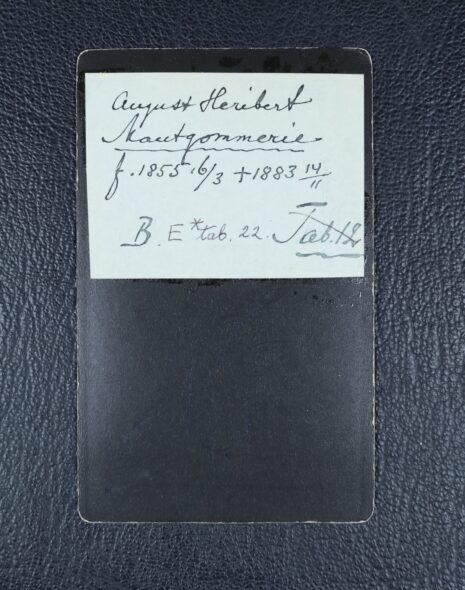 August Heribert
Mautgommerie
f. 1855 16/3 +1883 14/11
B. E* tab. 22. Tab. 12